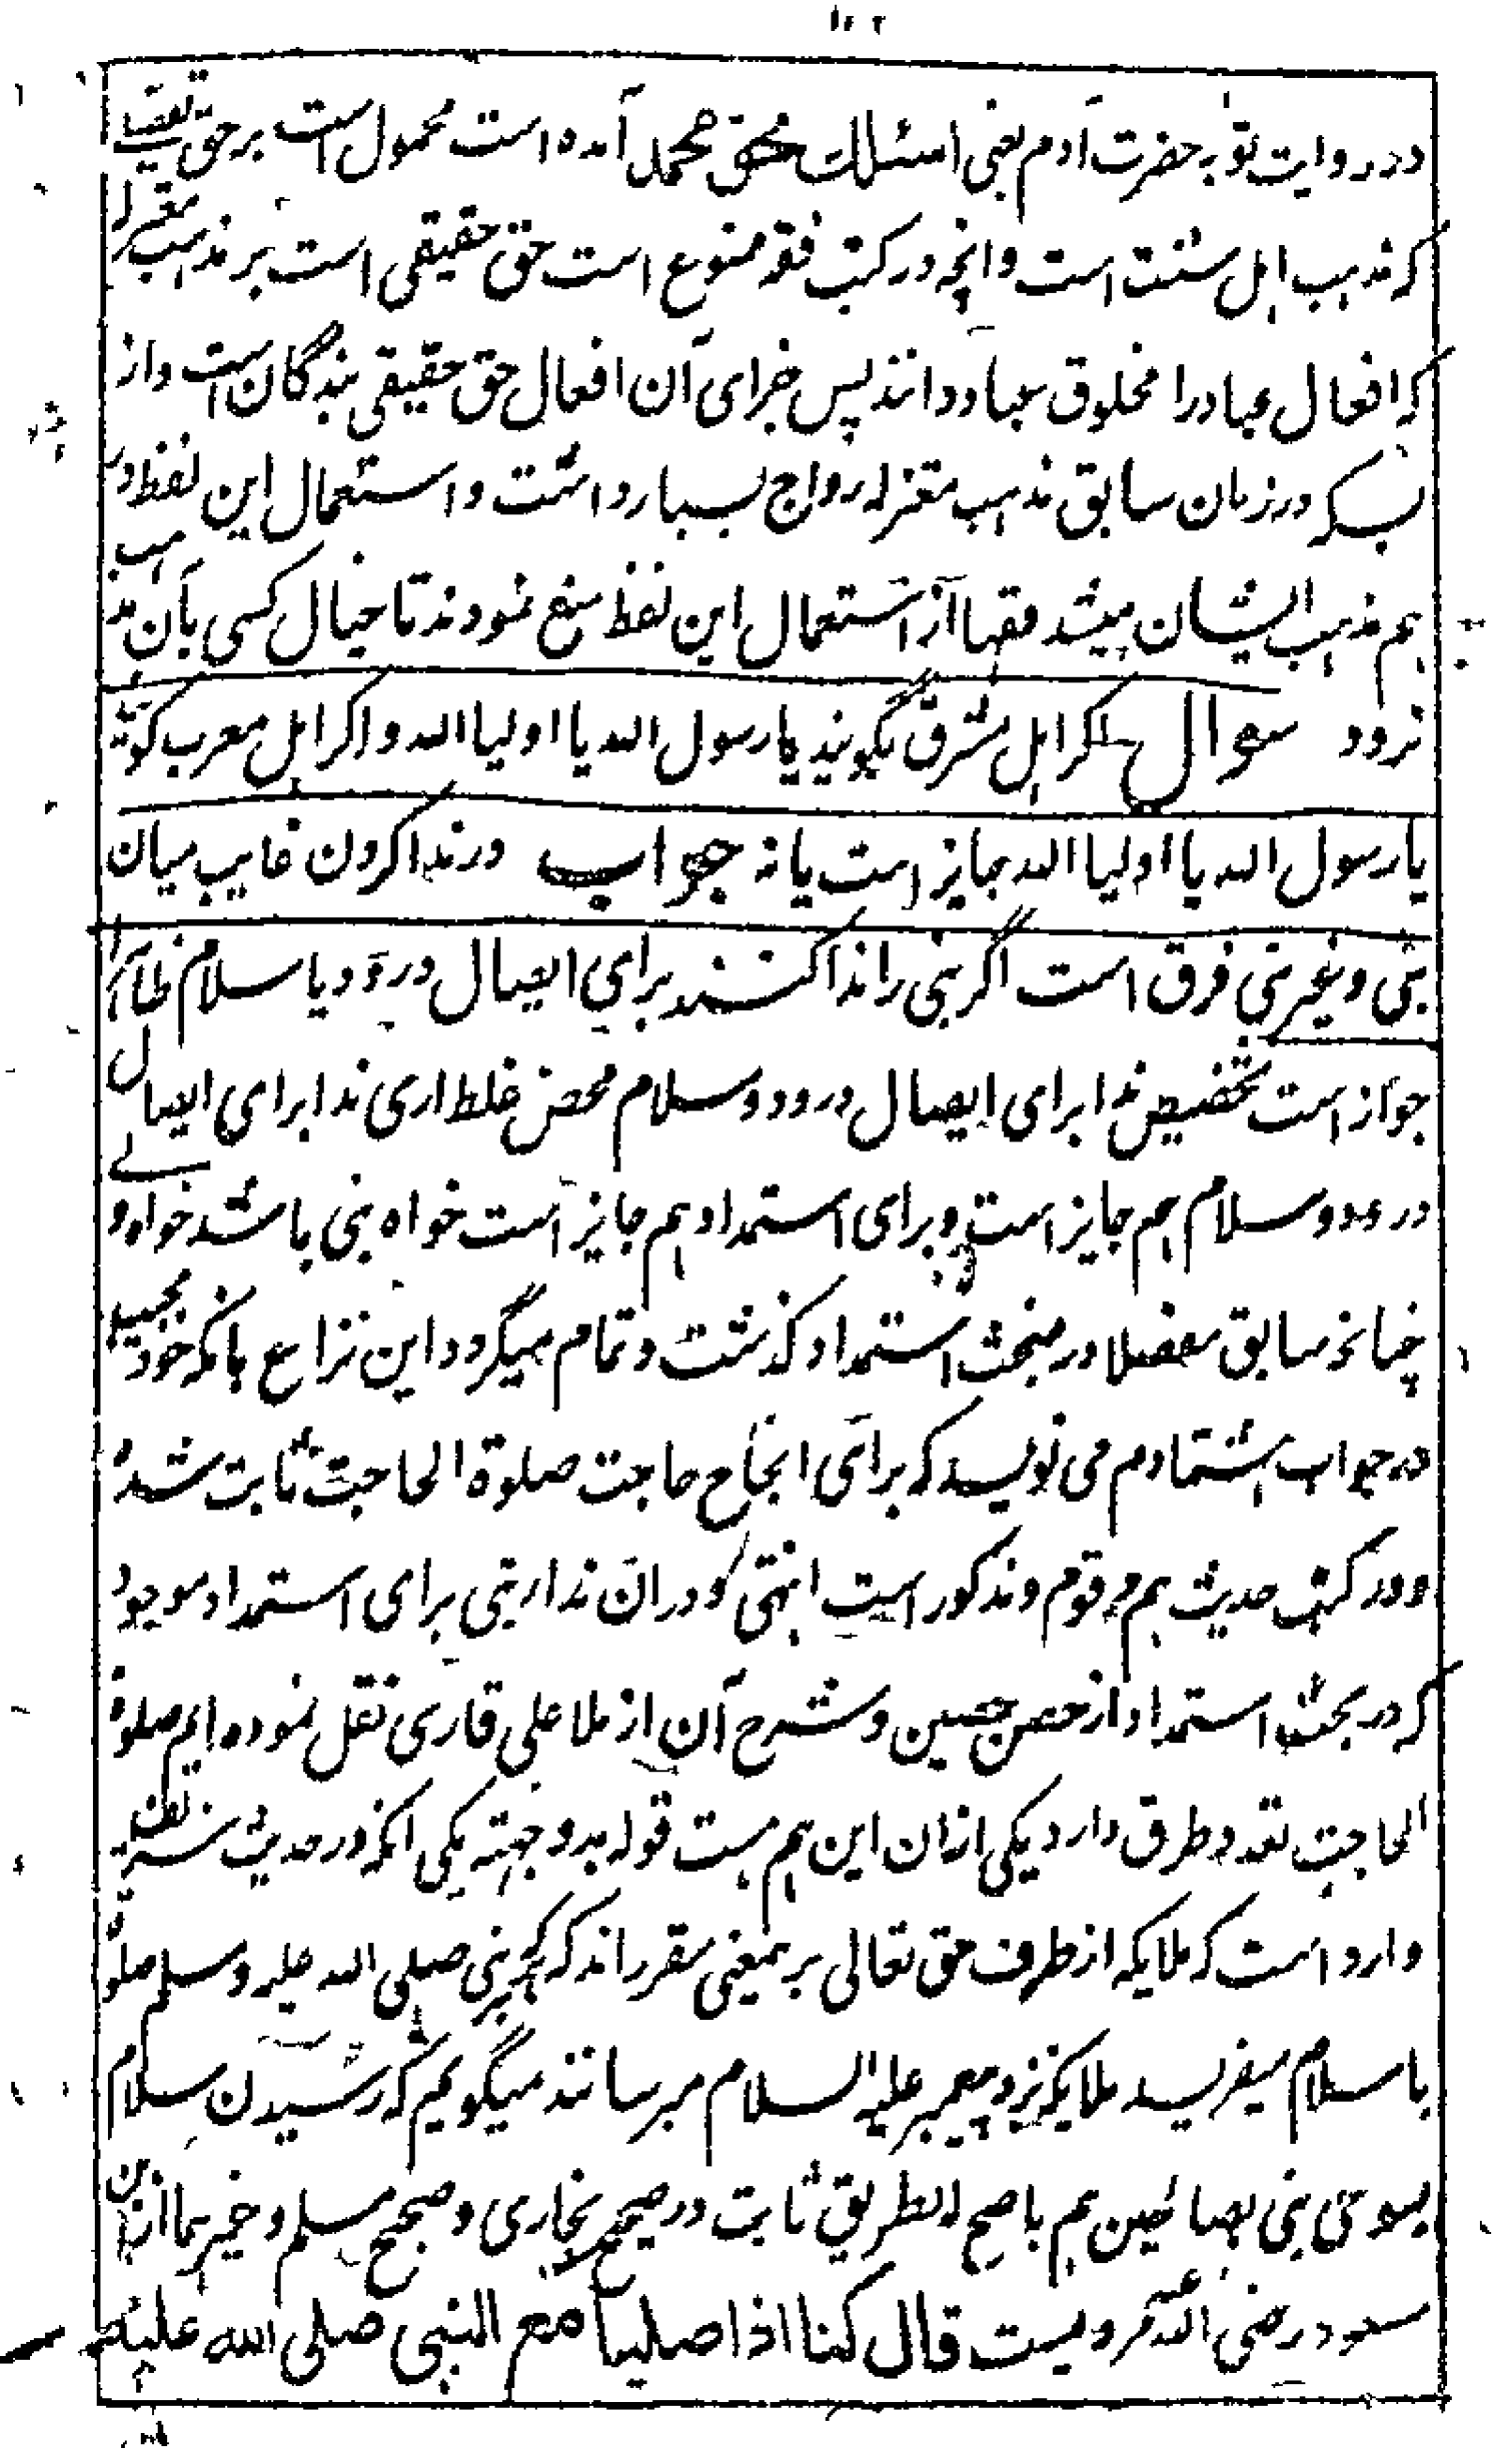 ۱۰۲
در روایت توبه حضرت آدم یعنی اسئلک بحق محمد آمده است محمول است بر حق تفضلی
که مذهب اهل سنت است وانچه در کتب فقه ممنوع است حق حقیقی است بر مذهب معتزله
که افعال عباد را مخلوق عباد دانند پس جزای آن افعال حق حقیقی بندگان است واز
بسکه در زمان سابق مذهب معتزله رواج بسیار داشت و استعمال این لفظ در
هم مذهب ایشان میشد فقها از استعمال این لفظ منع نمودند تا خیال کسی بآن مذهب
نرود سوال اگر اهل مشرق بگویند یا رسول الله یا اولیا الله و اگر اهل مغرب گویند
یا رسول الله یا اولیا الله جایز است یا نه جواب در ندا کردن غایب میان
نبی و غیر نبی فرق است اگر نبی را ندا کنند برای ایصال درود یا سلام ظاهرا
جواز است تخصیص ندا برای ایصال درود و سلام محض غلط اری ندا برای ایصال
درود و سلام هم جایز است و برای استمداد هم جایز است خواه نبی باشد خواه ولی
چنانچه سابق مفصلا در مبحث استمداد گذشت و تمام میگردد این نزاع بانکه خود مجیب
در جواب هشتادم می نویسد که برای انجاح حاجت صلوة الحاجت ثابت شده
و در کتب حدیث هم مرقوم و مذکور است انتهی و دران ندا نبی برای استمداد موجود
که در بحث استمداد از حصن حصین و شرح آن از ملا علی قاری نقل نموده ایم صلوة
الحاجت تعدد طرق دارد یکی ازان این هم هست قوله بدو جهته یکی انکه در حدیث شریف
وارد است که ملایکه از طرف حق تعالی بر همینی مقرر اند که هر که بر نبی صلی الله علیه وسلم صلوة
یا سلام میفرستد ملایکه نزد پیغمبر علیه السلام میرسانند میگویم که رسیدن سلام
بسوی نبی بصالحین هم باصح الطریق ثابت در صحیح بخاری و صحیح مسلم و غیرهما از ابن
مسعود رضی الله عنه مرویست قال کنا اذا صلینا مع النبی صلی الله علیه